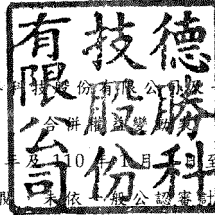 德勝科
技股份
有限公司
科技股份有限公司
合併權益變動
年及 110 年 1 月 至
未依一般公認審計